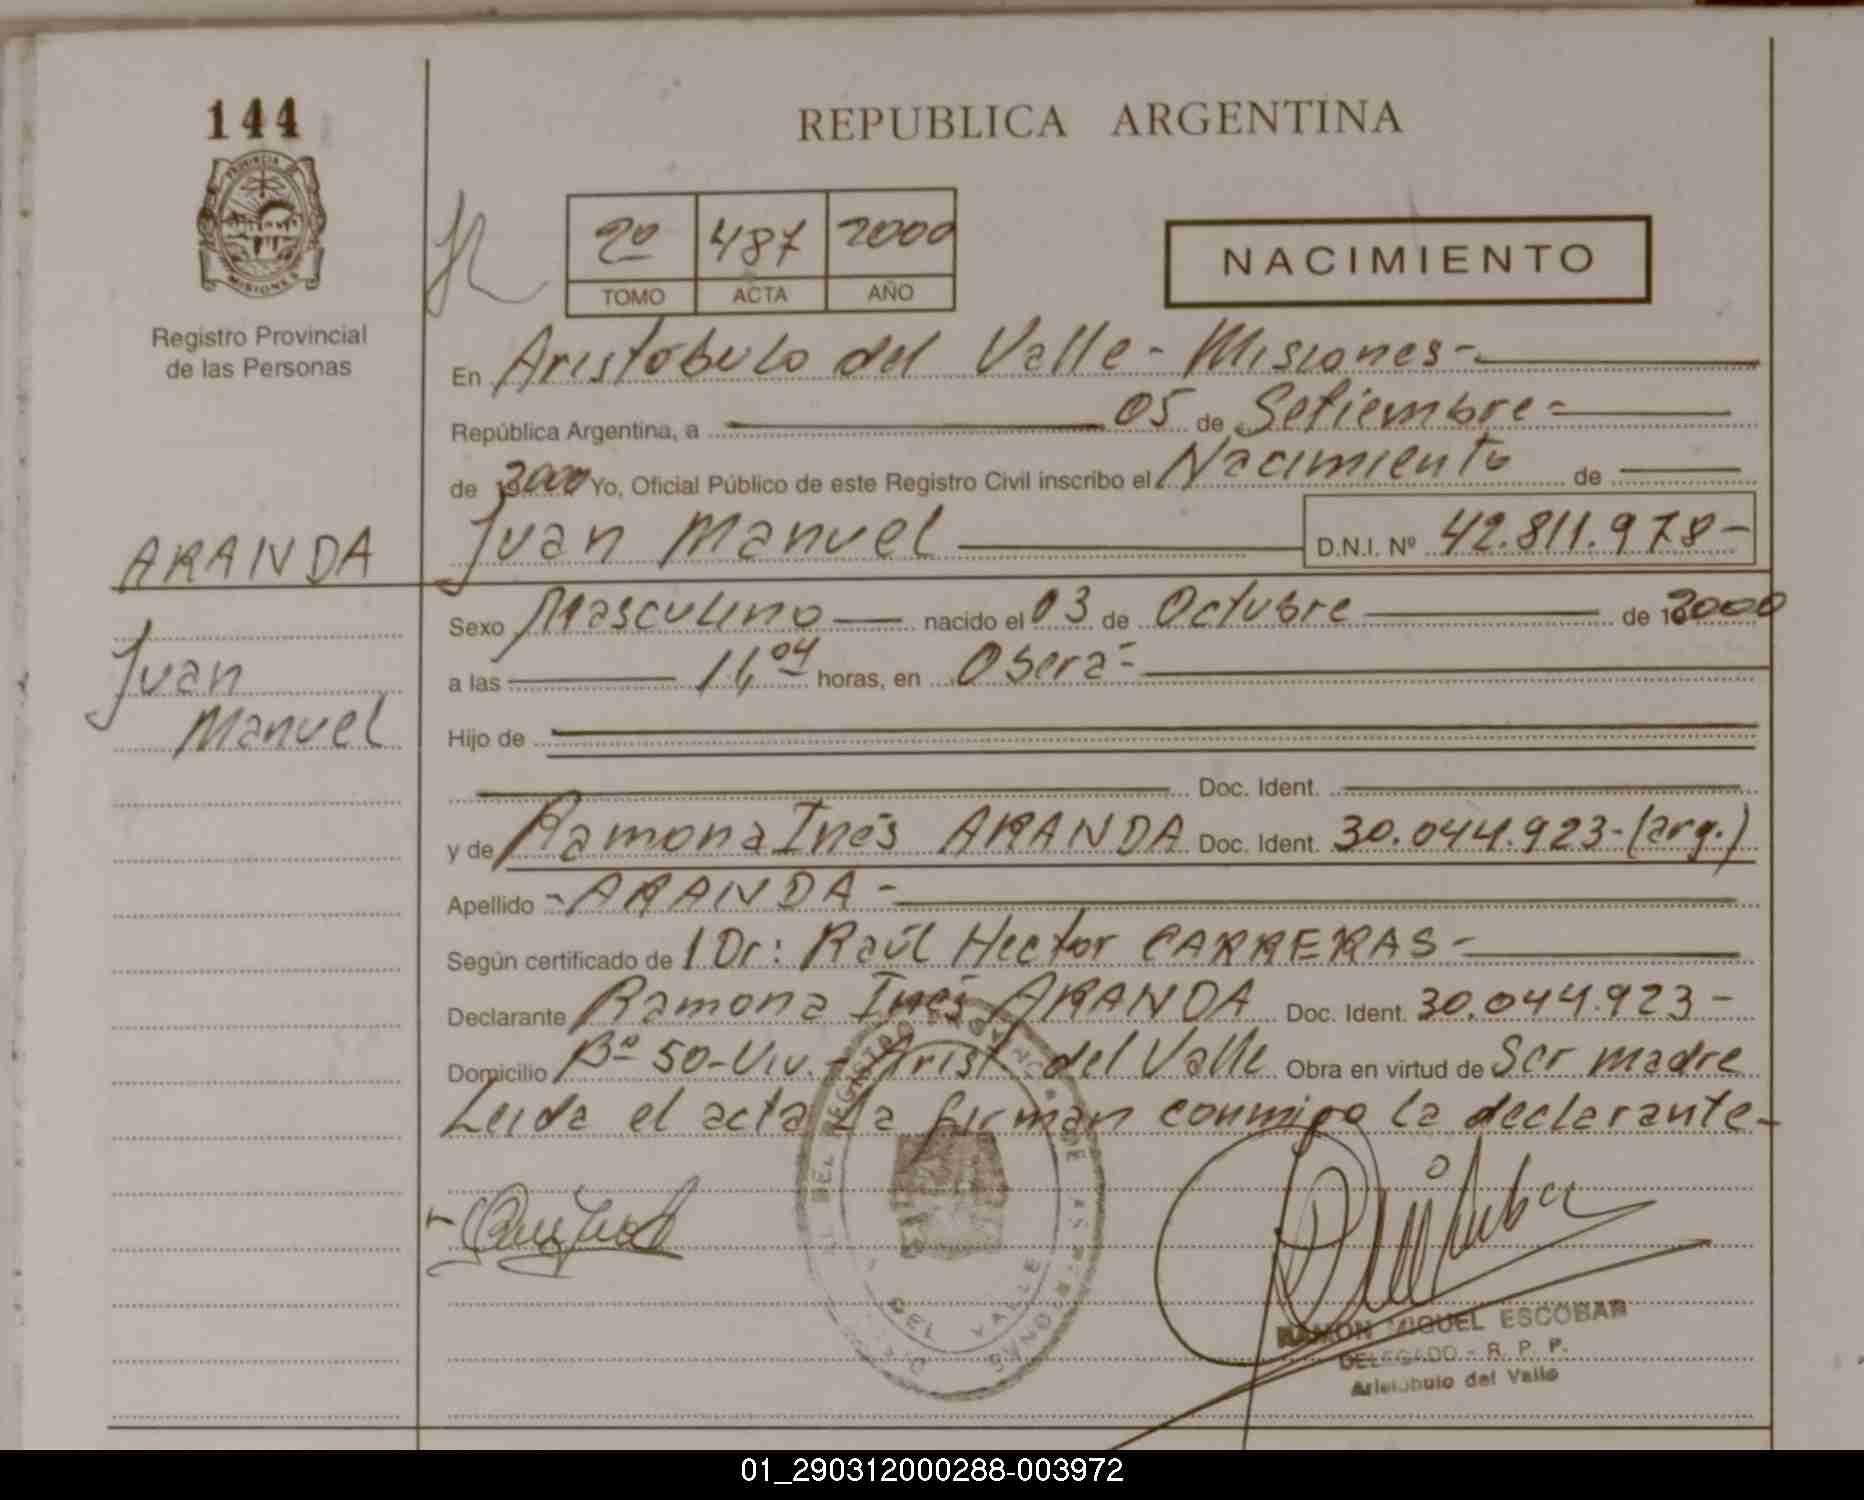 144
REPUBLICA ARGENTINA
PROVINCIA DE
MISIONES
Registro Provincial
de las Personas
2º 487 2000
TOMO ACTA AÑO
NACIMIENTO
En Aristóbulo del Valle - Misiones -
República Argentina, a 05 de Setiembre -
de 2000 Yo, Oficial Público de este Registro Civil inscribo el Nacimiento de
Juan Manuel D.N.I. Nº 42.811.978-
ARANDA
Juan
Manuel
Sexo Masculino nacido el 03 de Octubre de 2000
a las 14 04 horas, en Oberá -
Hijo de
Doc. Ident.
y de Ramona Inés ARANDA Doc. Ident. 30.044.923-(arg.)
Apellido - ARANDA -
Según certificado de / Dr: Raúl Hector CARRERAS -
Declarante Ramona Inés ARANDA Doc. Ident. 30.044.923 -
Domicilio Bº 50-Viv. - Arist. del Valle Obra en virtud de Ser madre
Leida el acta la firman conmigo la declarante -
DEL VALLE
RAMON MIGUEL ESCOBAR
DELEGADO - R. P. P.
Aristobulo del Valle
01_290312000288-003972